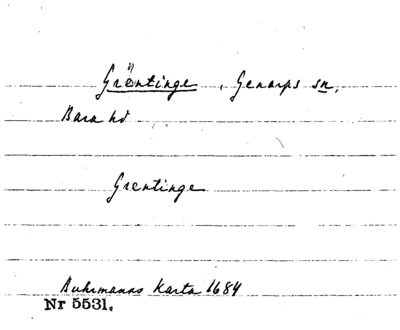 Gröntinge, Genarps sn,
Bara hd
Grentinge
Buhrmanns Karta 1684
Nr 5531.